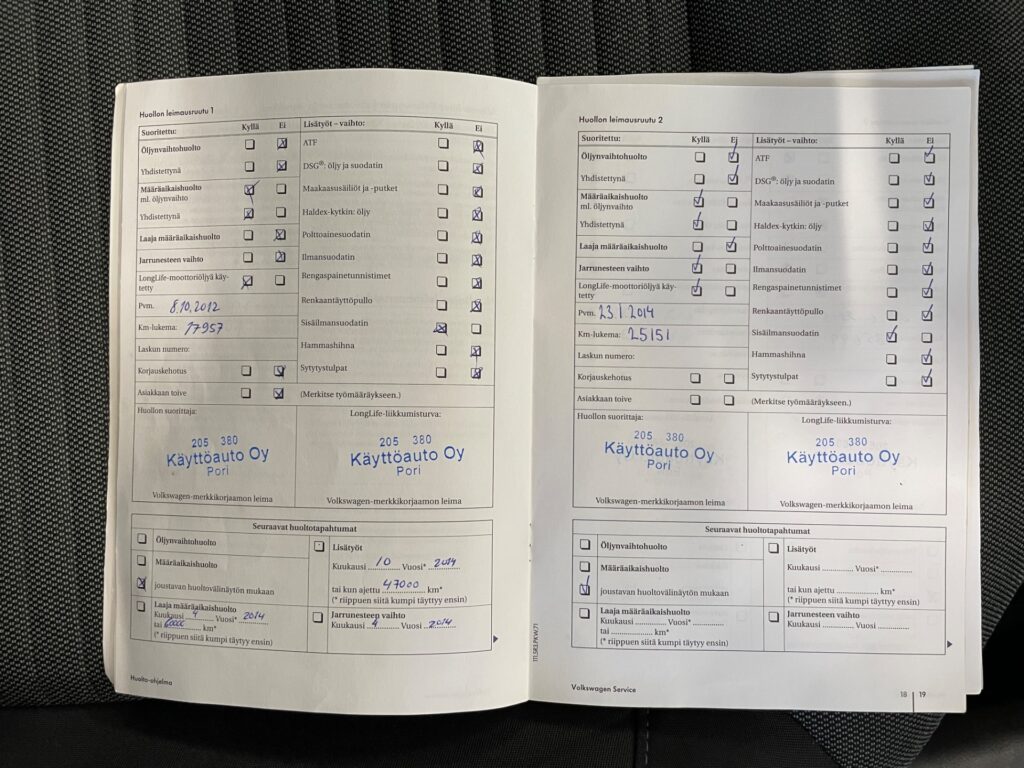 Huollon leimausruutu 1
Suoritettu: Kyllä Ei
Öljynvaihtohuolto
Yhdistettynä
Määräaikaishuolto
ml. öljynvaihto
Yhdistettynä
Laaja määräaikaishuolto
Jarrunesteen vaihto
LongLife-moottoriöljyä käy-
tetty
Pvm. 8.10.2012
Km-lukema: 17957
Laskun numero:
Korjauskehotus
Asiakkaan toive
Lisätyöt – vaihto: Kyllä Ei
ATF
DSG®: öljy ja suodatin
Maakaasusäiliöt ja -putket
Haldex-kytkin: öljy
Polttoainesuodatin
Ilmansuodatin
Rengaspainetunnistimet
Renkaantäyttöpullo
Sisäilmansuodatin
Hammashihna
Sytytystulpat
(Merkitse työmääräykseen.)
Huollon suorittaja:
205 380
Käyttöauto Oy
Pori
Volkswagen-merkkikorjaamon leima
LongLife-liikkumisturva:
205 380
Käyttöauto Oy
Pori
Volkswagen-merkkikorjaamon leima
Seuraavat huoltotapahtumat
Öljynvaihtohuolto
Määräaikaishuolto
joustavan huoltovälinäytön mukaan
Laaja määräaikaishuolto
Kuukausi 4 Vuosi* 2014
tai km*
(* riippuen siitä kumpi täyttyy ensin)
Lisätyöt
Kuukausi 10 Vuosi* 2014
tai kun ajettu 47000 km*
(* riippuen siitä kumpi täyttyy ensin)
Jarrunesteen vaihto
Kuukausi 4 Vuosi 2014
Huolto-ohjelma
Huollon leimausruutu 2
Suoritettu: Kyllä Ei
Öljynvaihtohuolto
Yhdistettynä
Määräaikaishuolto
ml. öljynvaihto
Yhdistettynä
Laaja määräaikaishuolto
Jarrunesteen vaihto
LongLife-moottoriöljyä käy-
tetty
Pvm. 23 1 2014
Km-lukema: 25151
Laskun numero:
Korjauskehotus
Asiakkaan toive
Lisätyöt – vaihto: Kyllä Ei
ATF
DSG®: öljy ja suodatin
Maakaasusäiliöt ja -putket
Haldex-kytkin: öljy
Polttoainesuodatin
Ilmansuodatin
Rengaspainetunnistimet
Renkaantäyttöpullo
Sisäilmansuodatin
Hammashihna
Sytytystulpat
(Merkitse työmääräykseen.)
Huollon suorittaja:
205 380
Käyttöauto Oy
Pori
Volkswagen-merkkikorjaamon leima
LongLife-liikkumisturva:
205 380
Käyttöauto Oy
Pori
Volkswagen-merkkikorjaamon leima
Seuraavat huoltotapahtumat
Öljynvaihtohuolto
Määräaikaishuolto
joustavan huoltovälinäytön mukaan
Laaja määräaikaishuolto
Kuukausi ............. Vuosi* .............
tai ...................... km*
(* riippuen siitä kumpi täyttyy ensin)
Lisätyöt
Kuukausi ............. Vuosi* .............
tai kun ajettu ...................... km*
(* riippuen siitä kumpi täyttyy ensin)
Jarrunesteen vaihto
Kuukausi ............. Vuosi .............
Volkswagen Service
18 | 19